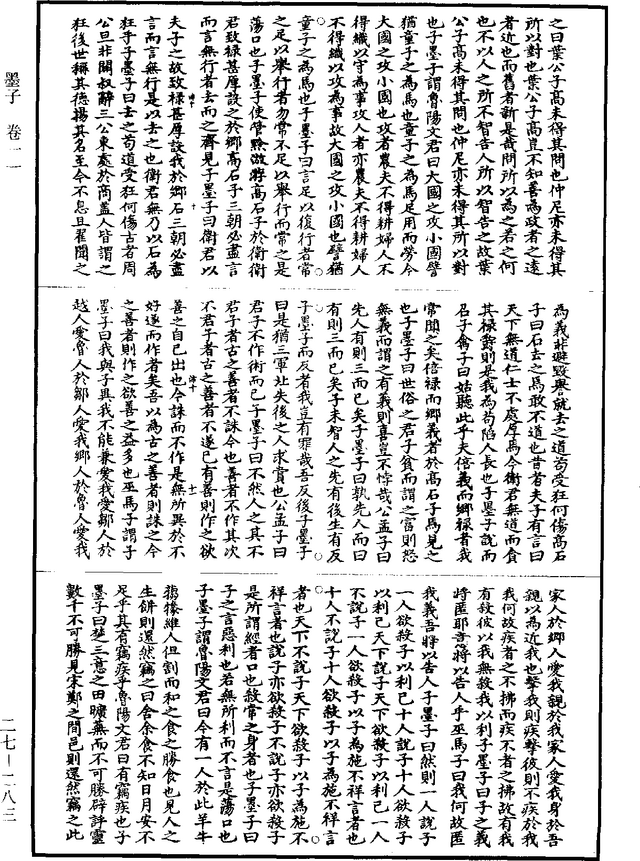 之曰葉公子高未得其問也仲尼亦未得其
所以對也葉公子高豈不知善為政者之遠
者近也而舊者新是哉問所以為之若之何
也不以人之所不智告人所以智告之故葉
公子高未得其問也仲尼亦未得其所以對
也子墨子謂魯陽文君曰大國之攻小國譬
猶童子之為馬也童子之為馬足用而勞今
大國之攻小國也攻者農夫不得耕婦人不
得織以守為事攻人者亦農夫不得耕婦人
不得織以攻為事故大國之攻小國也譬猶
童子之為馬也子墨子曰言足以復行者常
之足以舉行者勿常不足以舉行而常之是
蕩口也子墨子使管黔滶游高石子於衛衛
君致祿甚厚設之於鄉高石子三朝必盡言
而言無行者去而之齊見子墨子曰衛君以
夫子之故致祿甚厚設我於鄉石三朝必盡
言而言無行是以去之也衛君無乃以石為
狂乎子墨子曰去之苟道受狂何傷古者周
公旦非關叔辭三公東處於商蓋人皆謂之
狂後世稱其德揚其名至今不息且翟聞之
為義非避毀譽就去之道苟受狂何傷高石
子曰石去之焉敢不道也昔者夫子有言曰
天下無道仁士不處厚焉今衛君無道而貪
其祿爵則是我為苟陷人長也子墨子說而
召子禽子曰姑聽此乎夫倍義而鄉祿者我
常聞之矣倍祿而鄉義者於高石子焉見之
也子墨子曰世俗之君子貧而謂之富則怒
無義而謂之有義則喜豈不悖哉公孟子曰
先人有則三而已矣子墨子曰孰先人而曰
有則三而已矣子未智人之先有後生有反
子墨子而反者我豈有罪哉吾反後子墨子
曰是猶三軍北失後之人求賞也公孟子曰
君子不作術而已子墨子曰不然人之其不
君子者古之善者不誅今也善者不作其次
不君子者古之善者不遂已有善則作之欲
善之自己出也今誅而不作是無所異於不
好遂而作者矣吾以為古之善者則誅之今
之善者則作之欲善之益多也巫馬子謂子
墨子曰我與子異我不能兼愛我愛鄒人於
越人愛魯人於鄒人愛我鄉人於魯人愛我
家人於鄉人愛我親於我家人愛我身於吾
親以為近我也擊我則疾擊彼則不疾於我
我何故疾者之不拂而不疾者之拂故有我
有殺彼以我無殺我以利子墨子曰子之義
將匿耶意將以告人乎巫馬子曰我何故匿
我義吾將以告人子墨子曰然則一人說子
一人欲殺子以利己十人說子十人欲殺子
以利己天下說子天下欲殺子以利己一人
不說子一人欲殺子以子為施不祥言者也
十人不說子十人欲殺子以子為施不祥言
者也天下不說子天下欲殺子以子為施不
祥言者也說子亦欲殺子不說子亦欲殺子
是所謂經者口也殺常之身者也子墨子曰
子之言惡利也若無所利而不言是蕩口也
子墨子謂魯陽文君曰今有一人於此羊牛
犓㹖維人但割而和之食之勝食也見人之
生餅則還然竊之曰舍余食不知日月安不
足乎其有竊疾乎魯陽文君曰有竊疾也子
墨子曰楚三意之田曠蕪而不可勝辟評靈
數千不可勝見宋鄭之間邑則還然竊之此
墨子 卷一一
二七－二八三